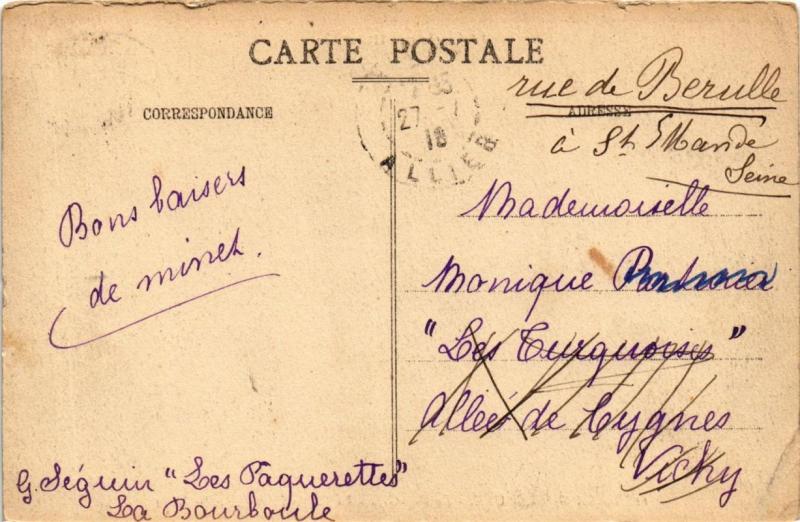 CARTE POSTALE
CORRESPONDANCE
ADRESSE
27
18
ALLIER
rue de Berulle
à St Mande
Seine
Bons baisers
de minet.
Mademoiselle
Monique
"Les Turquoises"
Allée de Cygnes
Vichy
G. Séguin "Les Paquerettes"
La Bourboule